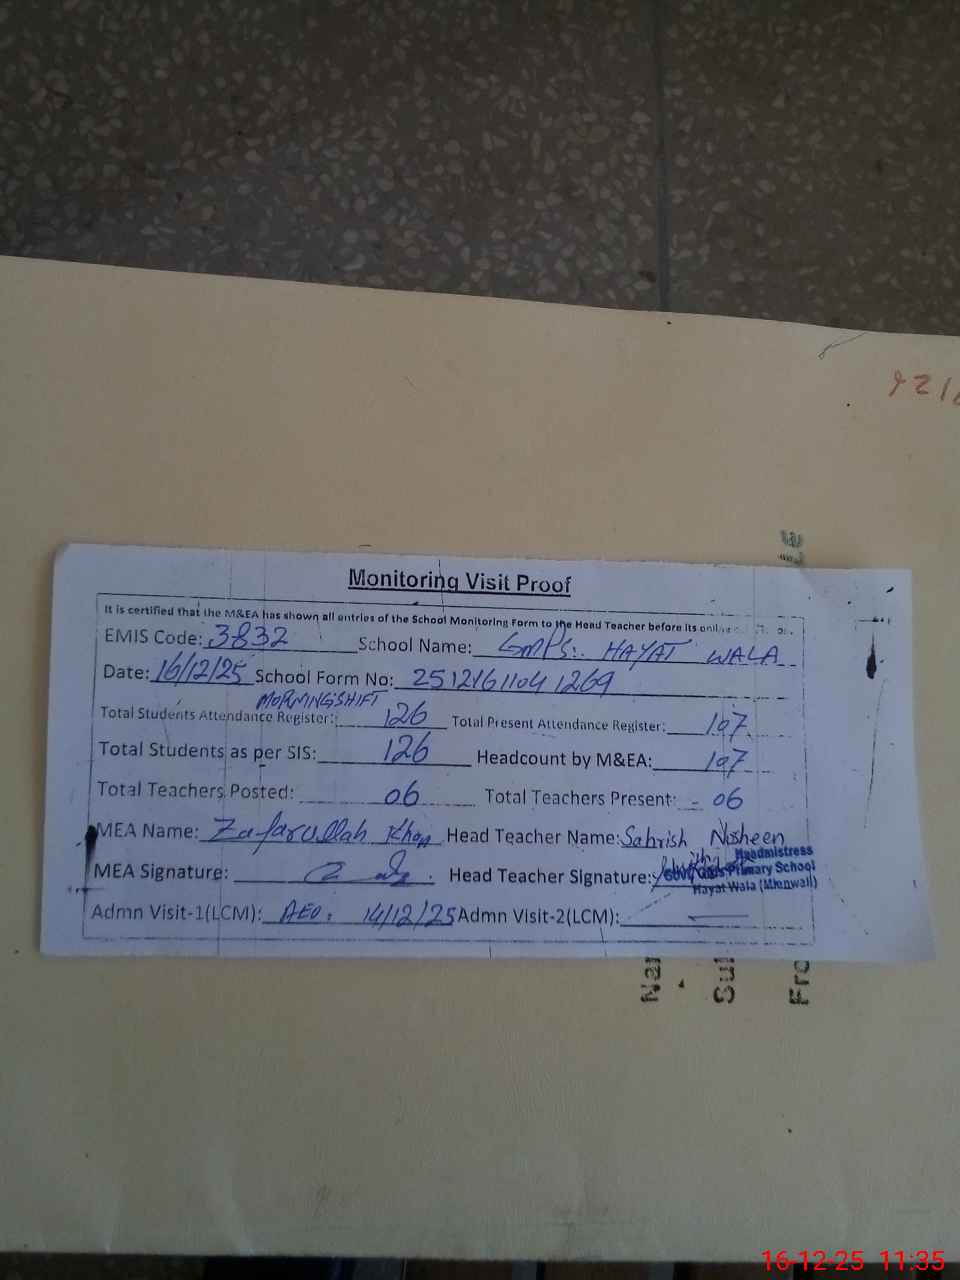 Monitoring Visit Proof
It is certified that the M&EA has shown all entries of the School Monitoring Form to the Head Teacher before its online
EMIS Code: 3832 School Name: GMPS: HAYAT WALA
Date: 16/12/25 School Form No: 2512161104 1269
MORNING SHIFT
Total Students Attendance Register: 126 Total Present Attendance Register: 107
Total Students as per SIS: 126 Headcount by M&EA: 107
Total Teachers Posted: 06 Total Teachers Present: 06
MEA Name: Zafarullah Khan Head Teacher Name: Sabrish Nosheen
MEA Signature: Head Teacher Signature:
Headmistress
Govt. Girls Primary School
Hayat Wala (Mianwali)
Admn Visit-1(LCM): AEO: 14/12/25 Admn Visit-2(LCM):
Nar
Sul
Fro
16-12-25 11:35